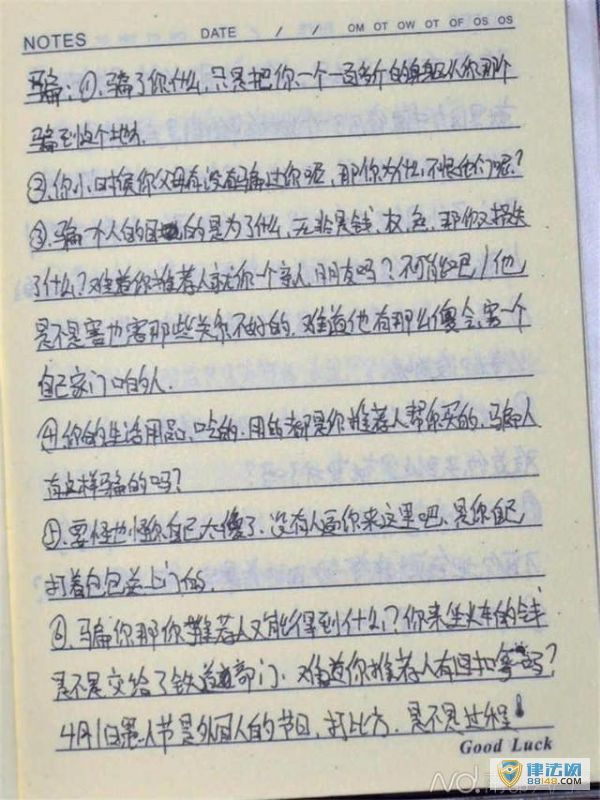 NOTES DATE / / OM OT OW OT OF OS OS
骗:①、骗了你什么,只是把你一个一百多斤的身躯从你那个
骗到这个地方.
②、你小时候你父母有没有骗过你呢,那你为什么不恨他们呢?
③、骗一个人的目的是为了什么,无非是钱、权、色,那你又损失
了什么?难道你推荐人就你一个亲人、朋友吗?不可能吧!他
是不是害也害那些关系不好的,难道他有那么傻会害一个
自己家门口的人.
④、你的生活用品、吃的、用的都是你推荐人帮你买的、骗人
有这样骗的吗?
⑤、要怪也怪你自己太傻了、没有人逼你来这里吧、是你自己
打着包包送上门的.
⑥、骗你那你推荐人又能得到什么?你来坐火车的钱
是不是交给了铁道部门、难道你推荐人有回扣拿吗?
4月1日愚人节是外国人的节日,打比方、是不是过程!
Good Luck
律法网
88148.com